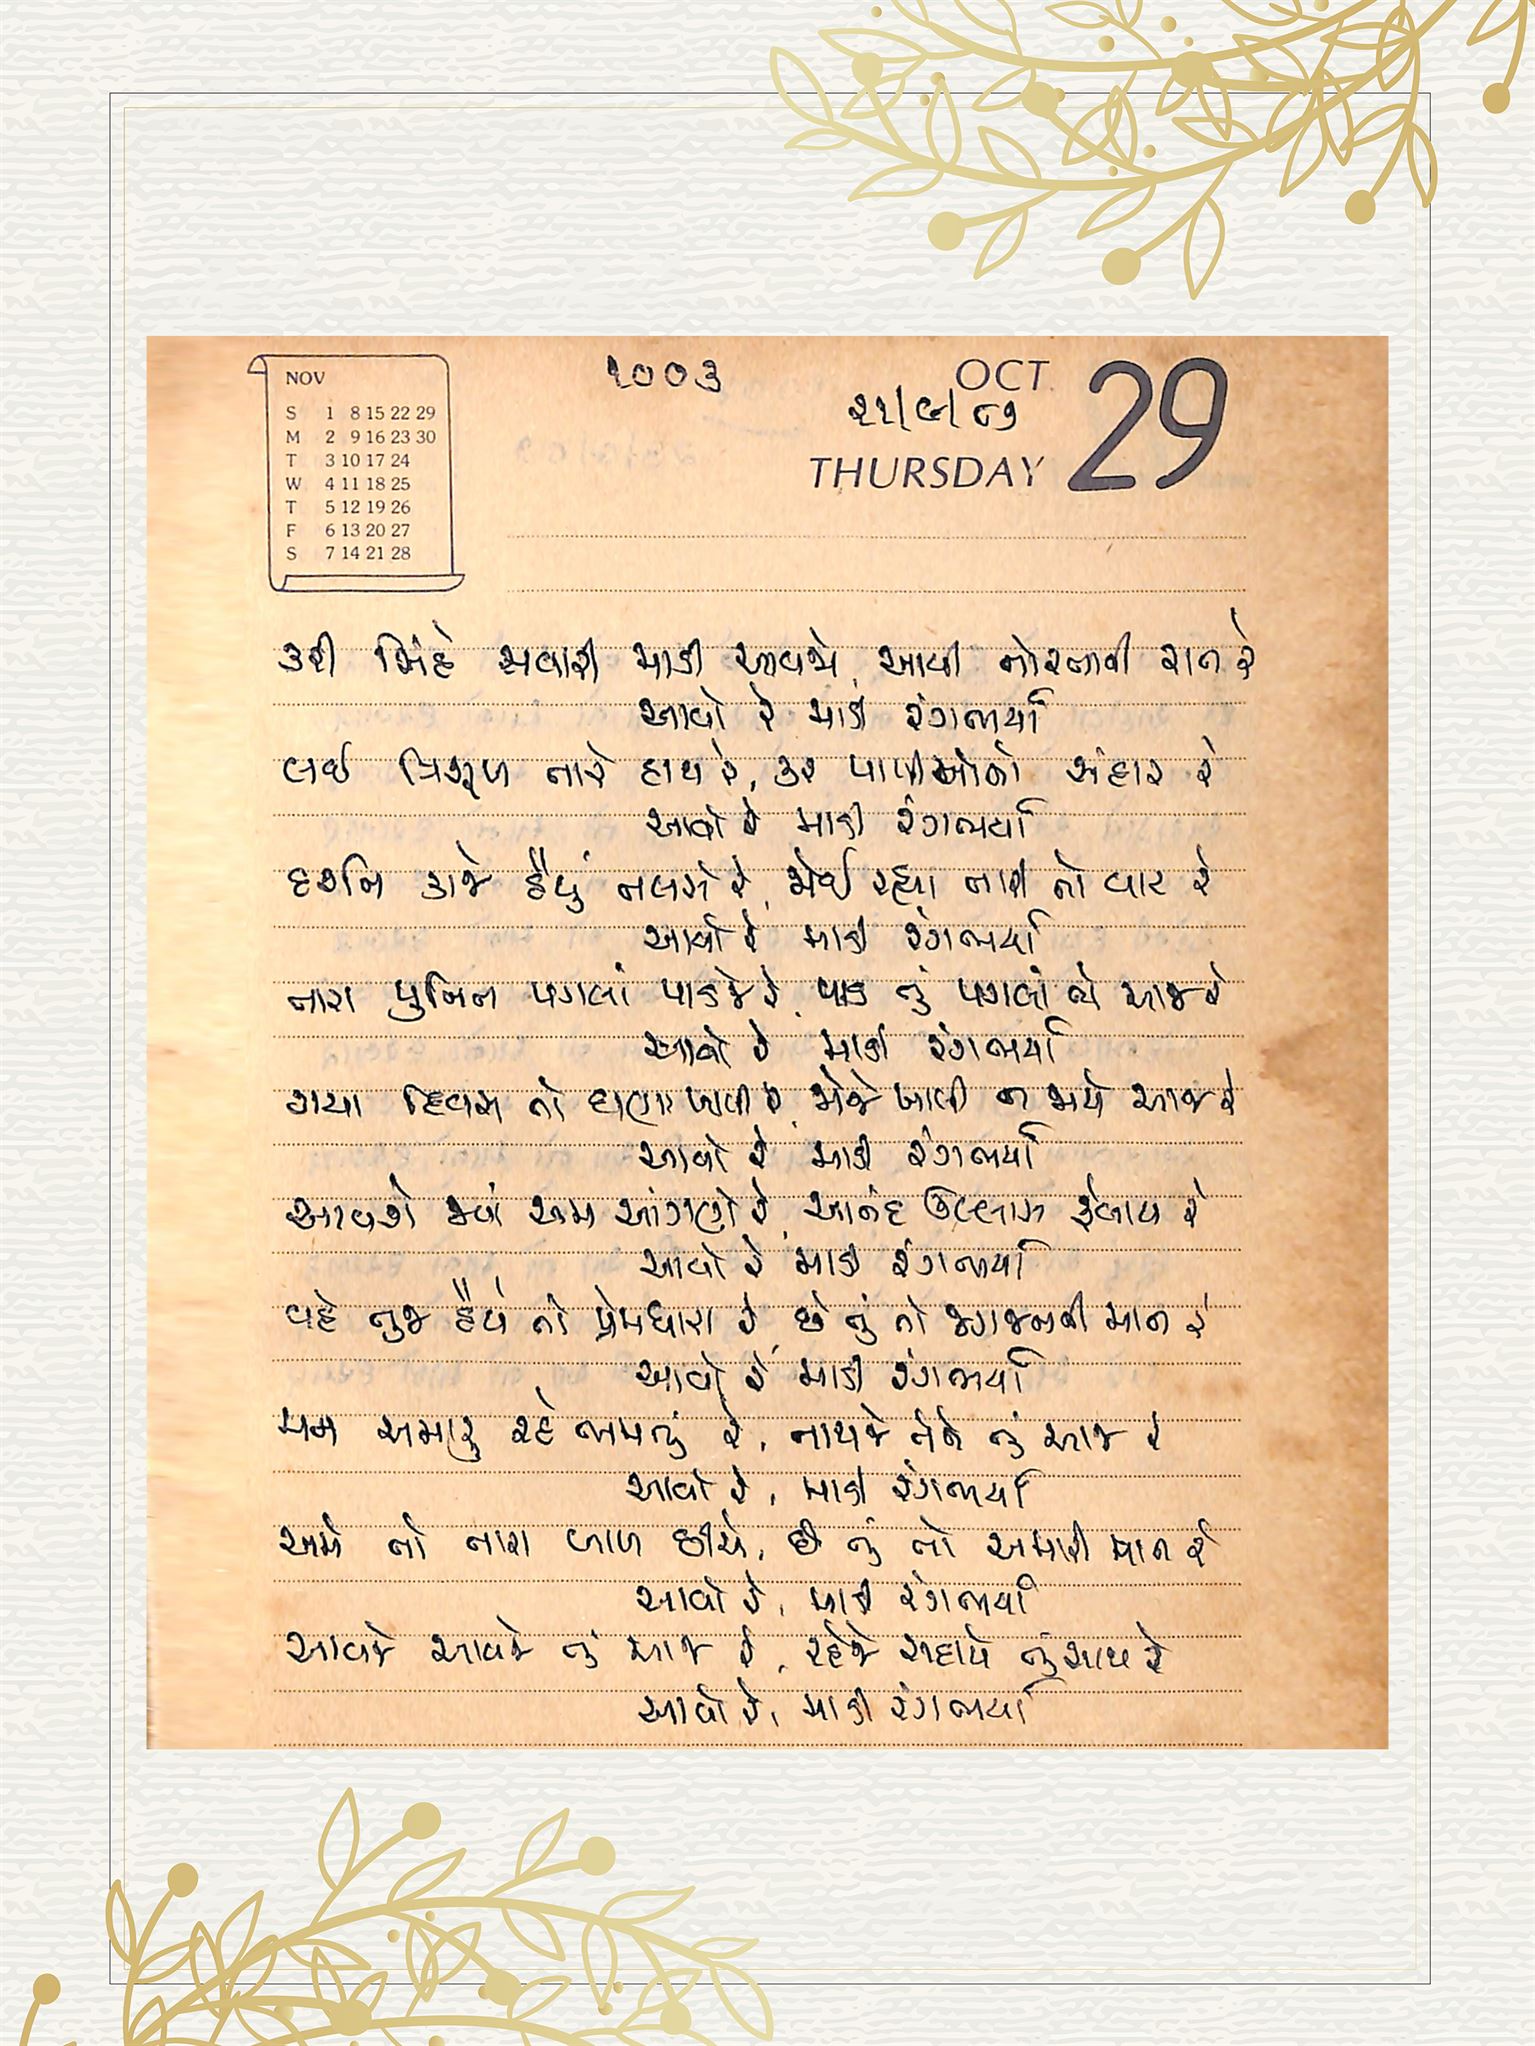 NOV
S 1 8 15 22 29
M 2 9 16 23 30
T 3 10 17 24
W 4 11 18 25
T 5 12 19 26
F 6 13 20 27
S 7 14 21 28
૧૦૦૩
OCT. 29
૨૧/૯/૮૭
THURSDAY
કરી સિંહે સવારી માડી આવજો, આવી નોરતાની રાત રે
આવો રે માડી રંગભર્યા
લઈ ત્રિશૂળ તારે હાથ રે, કર પાપીઓનો સંહાર રે
આવો રે માડી રંગભર્યા
દર્શન કાજે હૈયું તલસે રે, જોઈ રહ્યા તારી તો વાટ રે
આવો રે માડી રંગભર્યા
તારા પુનિત પગલાં પાડજે રે, પાડ તું પગલાં તો આજ રે
આવો રે માડી રંગભર્યા
ગયા દિવસ તો ઘણા ખાલી રે, જોજે ખાલી ન જાયે આજ રે
આવો રે માડી રંગભર્યા
આવશો જ્યાં અમ આંગણે રે, આનંદ ઉલ્લાસ ફેલાય રે
આવો રે માડી રંગભર્યા
વહે તુજ હૈયે તો પ્રેમધારા રે, છે તું તો જગજનની માત રે
આવો રે માડી રંગભર્યા
મન અમારું રહે ભમતું રે, નાથજે તેને તું આજ રે
આવો રે, માડી રંગભર્યા
અમે તો તારા બાળ છીએ, છે તું તો અમારી માત રે
આવો રે, માડી રંગભર્યા
આવજે આવજે તું આજ રે, રહેજે સદાયે તું સાથ રે
આવો રે, માડી રંગભર્યા